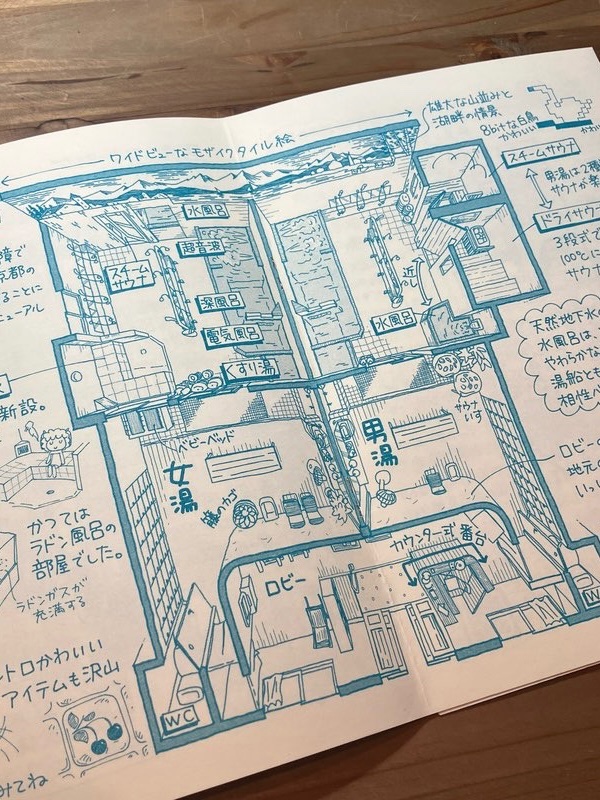 ワイドビューなモザイクタイル絵
雄大な山並みと
湖畔の情景
8bitな白鳥
かわいい
スチームサウナ
男湯は2種
サウナが楽
ドライサウ
3段式で
100℃に
サウナ
天然地下水の
水風呂は、
やわらかな
湯船とも
相性
ロビーの
地元の
いっ
水風呂
超音波
スチーム
サウナ
深風呂
電気風呂
くすり湯
近い
水風呂
サウナ
いす
ベビーベッド
女湯
籐のカゴ
男湯
ロビー
カウンター式番台
WC
W
京都の
ることに
ニューアル
新設。
かつては
ラドン風呂の
部屋でした。
ラドンガスが
充満する
トロかわいい
アイテムも沢山
みてね